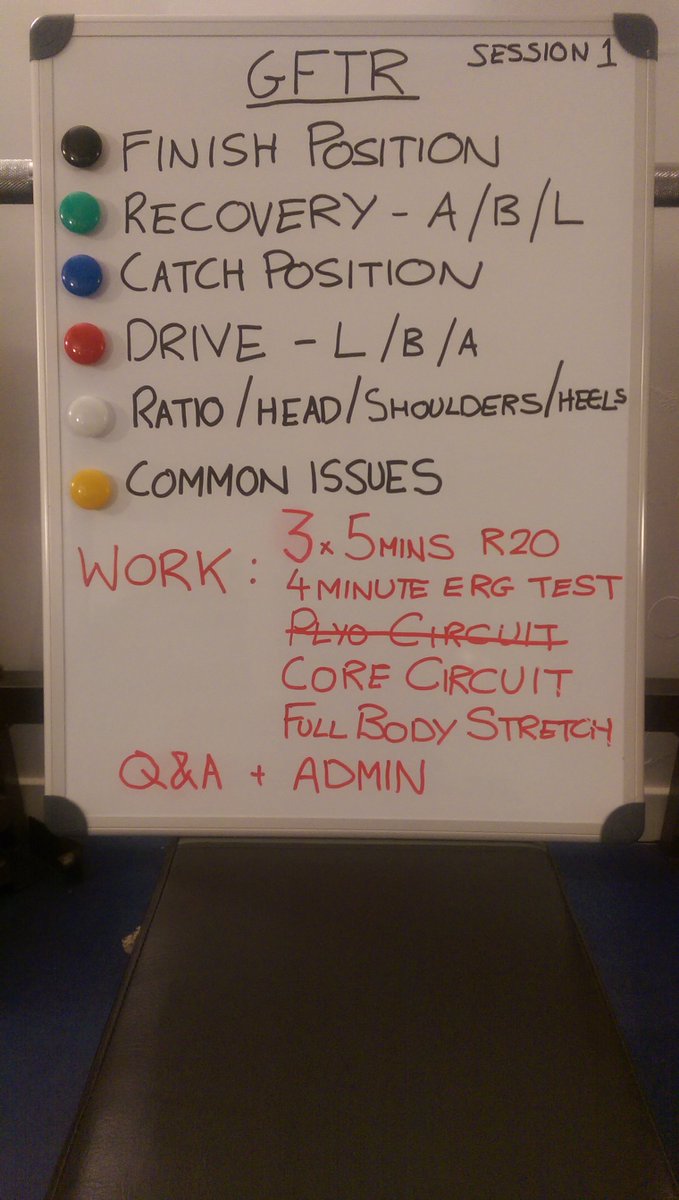 GFTR
SESSION 1
FINISH POSITION
RECOVERY - A/B/L
CATCH POSITION
DRIVE - L/B/A
RATIO/HEAD/SHOULDERS/HEELS
COMMON ISSUES
WORK: 3x5MINS R20
4 MINUTE ERG TEST
PLYO CIRCUIT
CORE CIRCUIT
FULL BODY STRETCH
Q&A + ADMIN